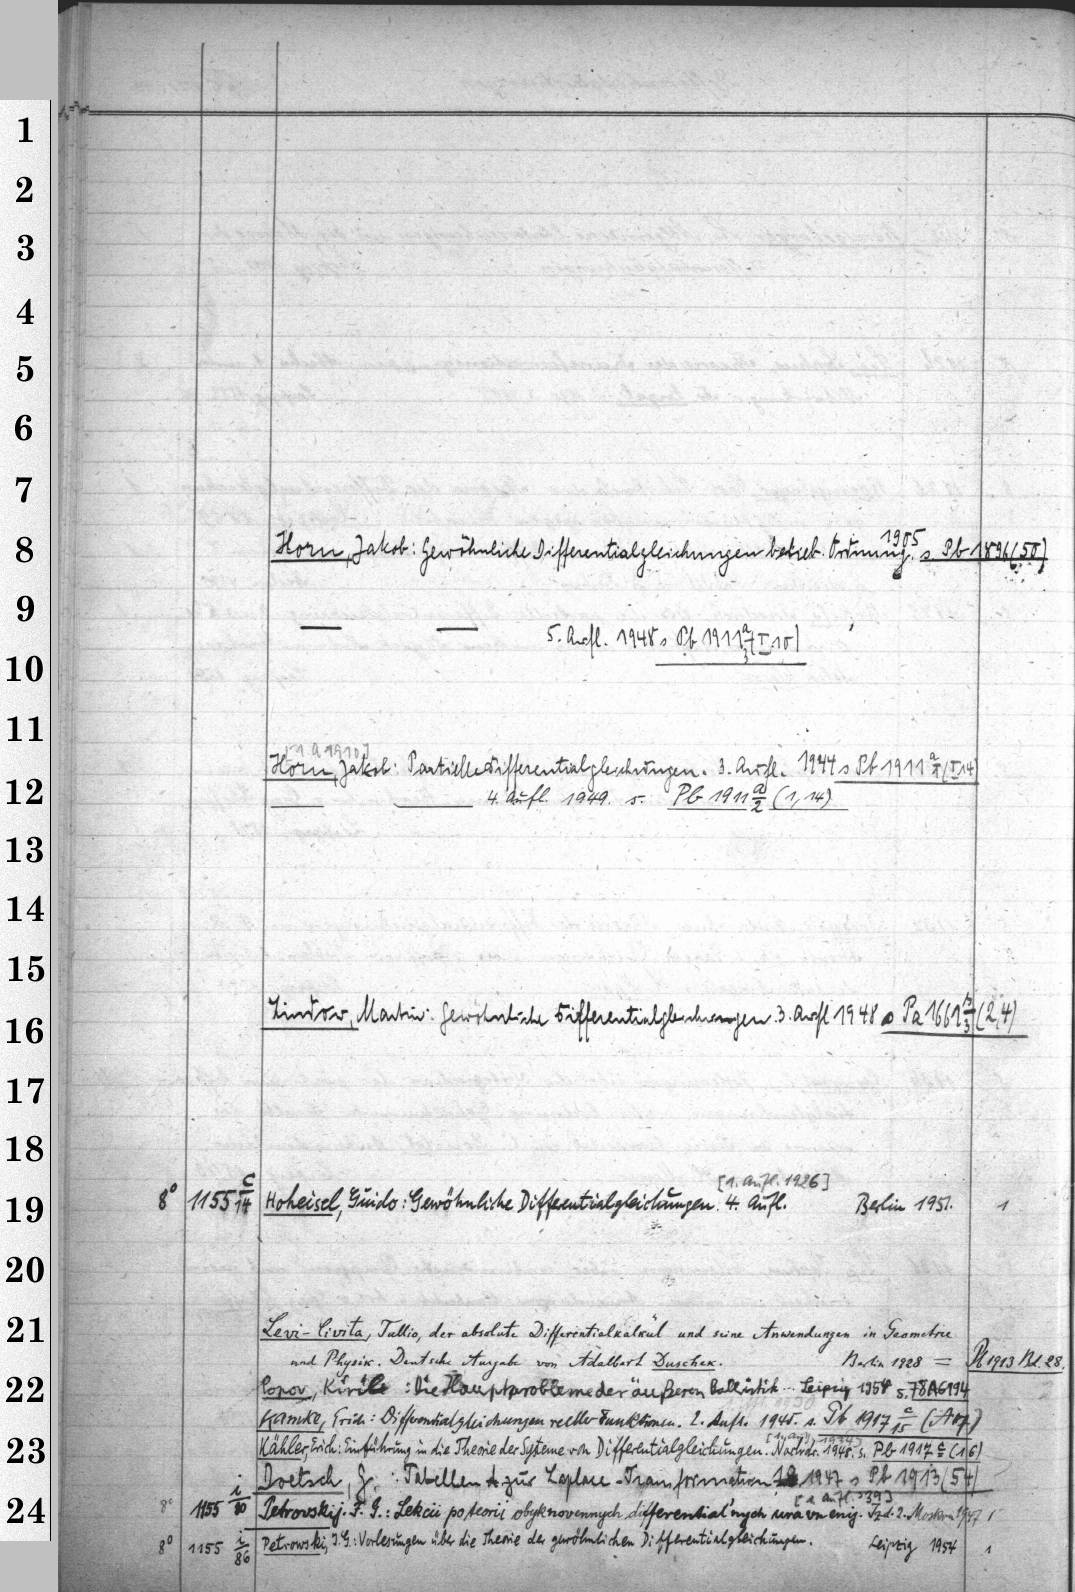 1
2
3
4
5
6
7
8 Horn, Jakob: Gewöhnliche Differentialgleichungen belieb. Ordnung. 1905 s. Pb 1896(50)
9
— — 5. Aufl. 1948 s Pb 1911 a/3 (I 10)
10
11
[1 A 1910]
Horn, Jakob: Partielle Differentialgleichungen. 3. Aufl. 1944 s Pb 1911 a/1 (I 14)
12 — — 4. Aufl. 1949. s. Pb 1911 a/2 (1, 14)
13
14
15
16 Lindow, Martin: Gewöhnliche Differentialgleichungen 3. Aufl 1948 s Pa 1661 b/3 (2,4)
17
18
[1. Aufl. 1926]
19 8° 1155 c/14 Hoheisel, Guido: Gewöhnliche Differentialgleichungen. 4. Aufl. Berlin 1951. 1
20
21 Levi-Civita, Tullio, der absolute Differentialkalkül und seine Anwendungen in Geometrie
und Physik. Deutsche Ausgabe von Adalbert Duschek. Berlin 1928 = Pl 1913 Bd. 28.
22 Popov, Kirill: Die Hauptprobleme der äußeren Ballistik... Leipzig 1954 s. 78A6194
Kamke, Erich: Differentialgleichungen reeller Funktionen. 2. Aufl. 1945. s. Pb 1917 c/15 (A07)
23 Kähler, Erich: Einführung in die Theorie der Systeme von Differentialgleichungen. Nachdr. 1948. s. Pb 1917 c (16)
Doetsch, G.: Tabellen zur Laplace-Transformation 1947 s Pb 1913 (54)
[1 Aufl. 39]
24 8° 1155 i/80 Petrovskij. I. G.: Lekcii po teorii obyknovennych differential'nych uravnenij. Izd. 2. Moskva 1947 1
8° 1155 i/86 Petrowski, I. G.: Vorlesungen über die Theorie der gewöhnlichen Differentialgleichungen. Leipzig 1954 1